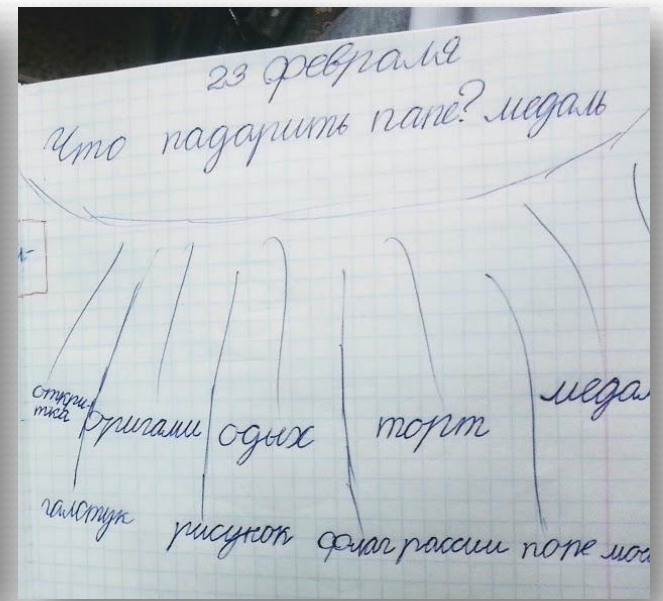 23 февраля
Что падарить папе? медаль
откри-
тка
оригами
одых
торт
медал
галстук
рисунок
флаг рассии
попе мо